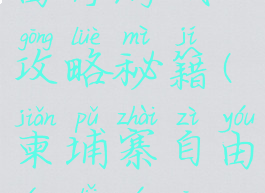 gōng lüè mì jí
攻略秘籍(
jiǎn pǔ zhài zì yóu
柬埔寨自由